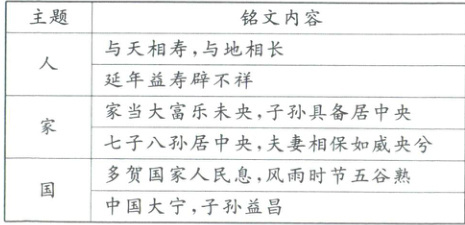 主题 铭文内容
人
与天相寿,与地相长
延年益寿辟不祥
家
家当大富乐未央,子孙具备居中央
七子八孙居中央,夫妻相保如威央兮
国
多贺国家人民息,风雨时节五谷熟
中国大宁,子孙益昌